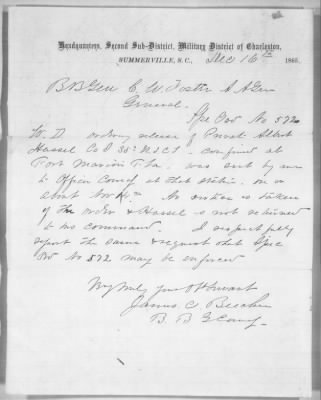 Headquarters, Second Sub-District, Military District of Charleston,
SUMMERVILLE, S.C., Dec 16th 1865.
B B Gen C. W. Foster A A Gen
General.
Spe Ord No 572
W. D. ordering release of Privat Albert
Hassel Co D 35th U.S.C.T. confined at
Fort Marion Fla. was sent by me
to Officer Comdg at that station on or
about Nov th. No notice is taken
of the order & Hassel is not returned
to his command. I respectfully
report the same & request that Spec
Ord No 572 may be enforced
Very truly your Obt Servant
James C. Beecher
B. B G Comdg.